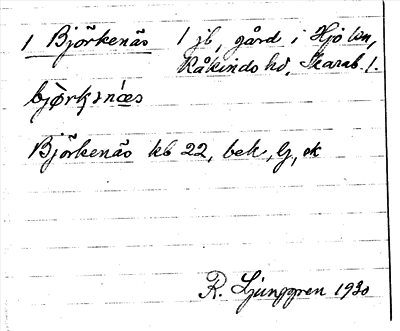 1 Björkenäs 1 jb, gård i Hjo ln,
Kåkinds hd, Skarab. l.
bjòrkɪnǽs
Björkenäs kb 22, bek, Lj, ek
R. Ljunggren 1930